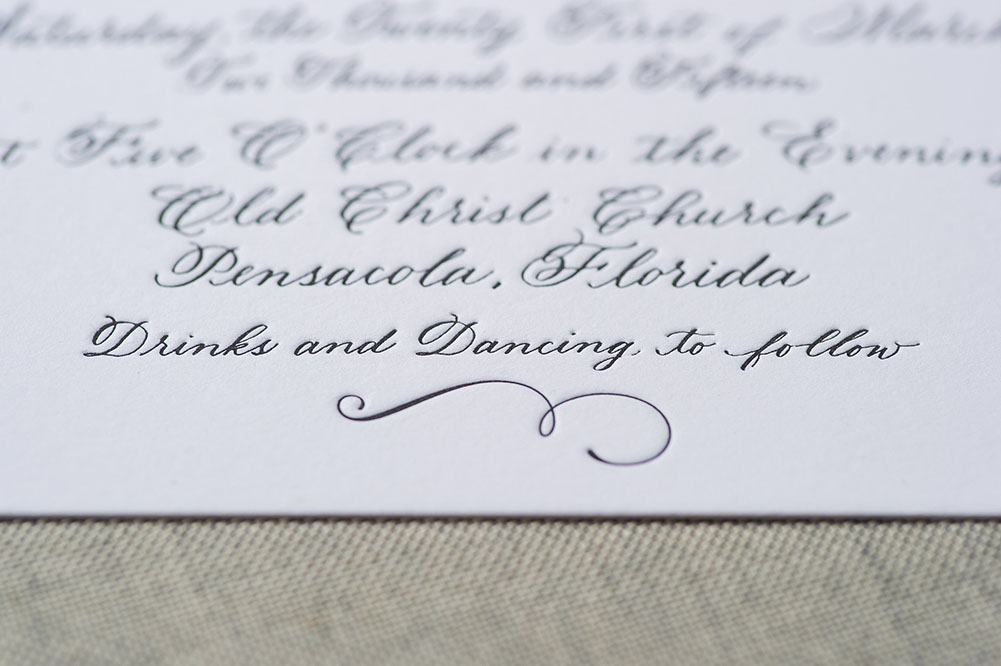 Saturday, the Twenty First of March
Two Thousand and Fifteen
at Five O'Clock in the Evening
Old Christ Church
Pensacola, Florida
Drinks and Dancing, to follow